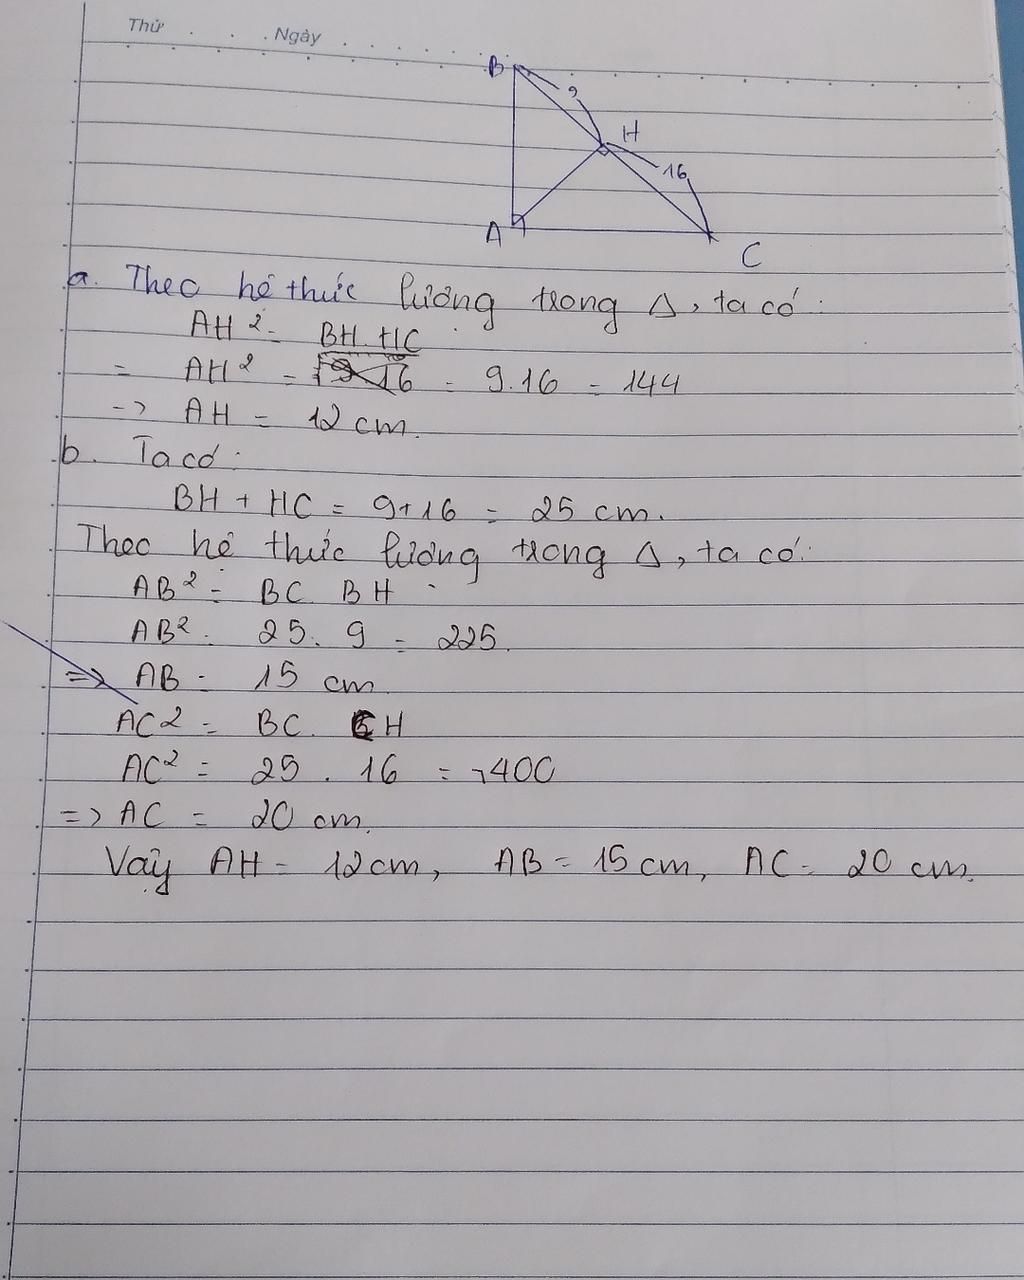 Thứ . . . Ngày . . . . . .
B
9
H
16
A
C
a. Theo hệ thức lượng trong Δ, ta có:
AH² = BH. HC
= AH² = 9.16 = 144
-> AH = 12 cm.
b. Ta có:
BH + HC = 9+16 = 25 cm.
Theo hệ thức lượng trong Δ, ta có:
AB² = BC. BH
AB² = 25. 9 = 225.
=> AB = 15 cm
AC² = BC. CH
AC² = 25 . 16 = 400
=> AC = 20 cm.
Vậy AH = 12cm, AB = 15 cm, AC = 20 cm.